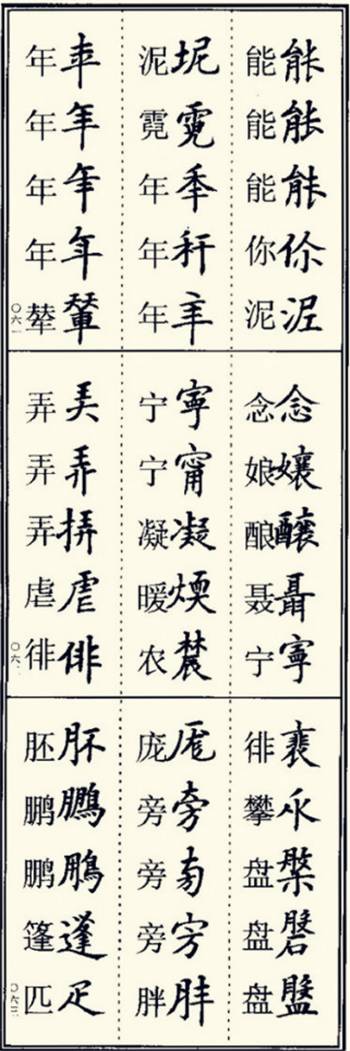 能䏻
能能
能䏻
你伱
泥泥
泥坭
霓霓
年秊
年秆
年
年
年年
年
年
辇輦
〇六一
念念
娘孃
酿釀
聂聶
宁寧
宁寧
宁甯
凝凝
暖煗
农農
弄
弄弄
弄挵
虐
徘俳
〇六二
徘裵
攀
盘槃
盘磐
盘盤
庞厖
旁旁
旁
旁
胖
胚肧
鹏鵬
鹏鵬
篷蓬
匹疋
〇六三